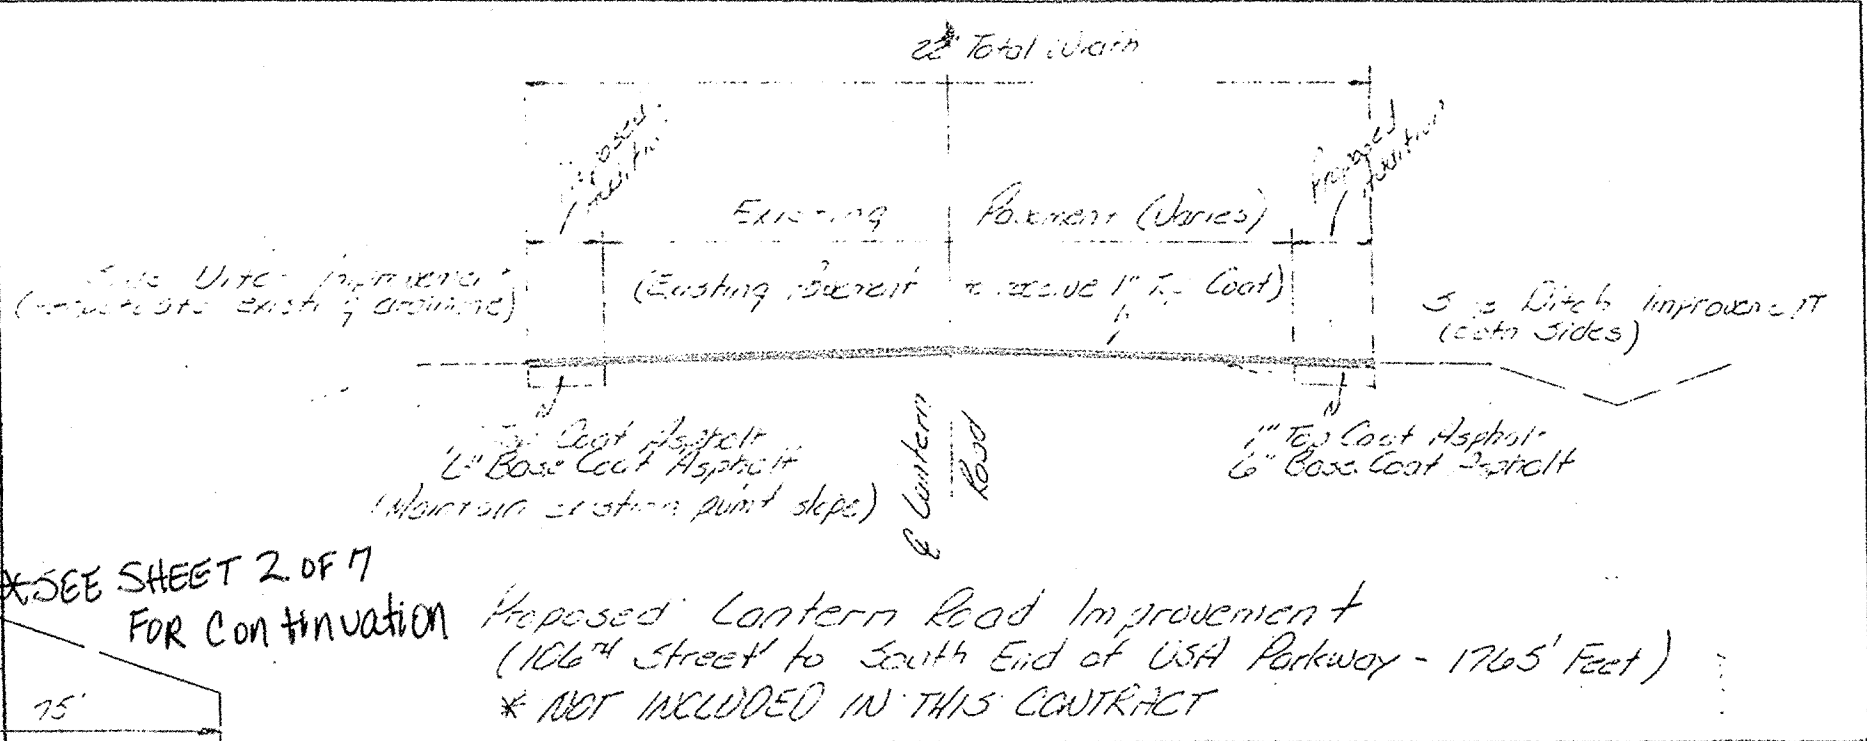 22' Total Width
Proposed
Proposed
Existing Pavement (Varies)
Side Ditch Improvement
(existing drainage)
(Existing Pavement to receive 1" Top Coat)
Side Ditch Improvement
(both sides)
Top Coat Asphalt
6" Base Coat Asphalt
(Maintain existing pvmt slope)
℄ Lantern
Road
1" Top Coat Asphalt
6" Base Coat Asphalt
*SEE SHEET 2 OF 7
FOR Continuation
Proposed Lantern Road Improvement
(106TH Street to South End of USA Parkway - 1765' Feet)
* NOT INCLUDED IN THIS CONTRACT
75'